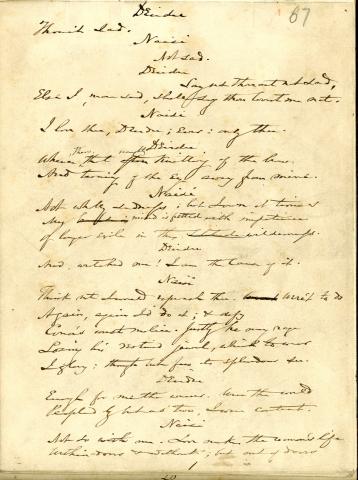 Deirdre
67
Thou'rt sad.
Naisi
Not sad.
Deirdre
Say not thou art not sad,
Else I, more sad, shall say thou lovest me not.
Naisi
I love thee, Deirdre; Ever: only thee.
Deirdre
Whence, that often knitting of the brow,
And turning of the eye away from mine.
Naisi
Not sadness; but I own at times
My mind is fretted with impatience
of large exile in this wilderness.
Deirdre
And, wretched me! I am the cause of it.
Naisi
Think not I would reproach thee. Were't to do
Again, again I'd do it; & defy
Conor's worst malice. Justly he may rage
Losing his destined jewel, which to wear
I glory: though but few its splendour see.
Deirdre
Enough for me the wearer. Were the world
Peopled by but us two, I were content.
Naisi
Not so with me. Love makes the woman's life
Within doors & without; but out of doors